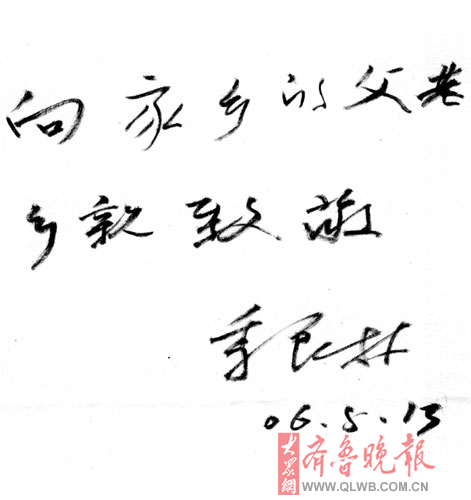 向家乡的父老
乡亲致敬
季羡林
06.5.13
大眾網 齐魯晚報
WWW.QLWB.COM.CN